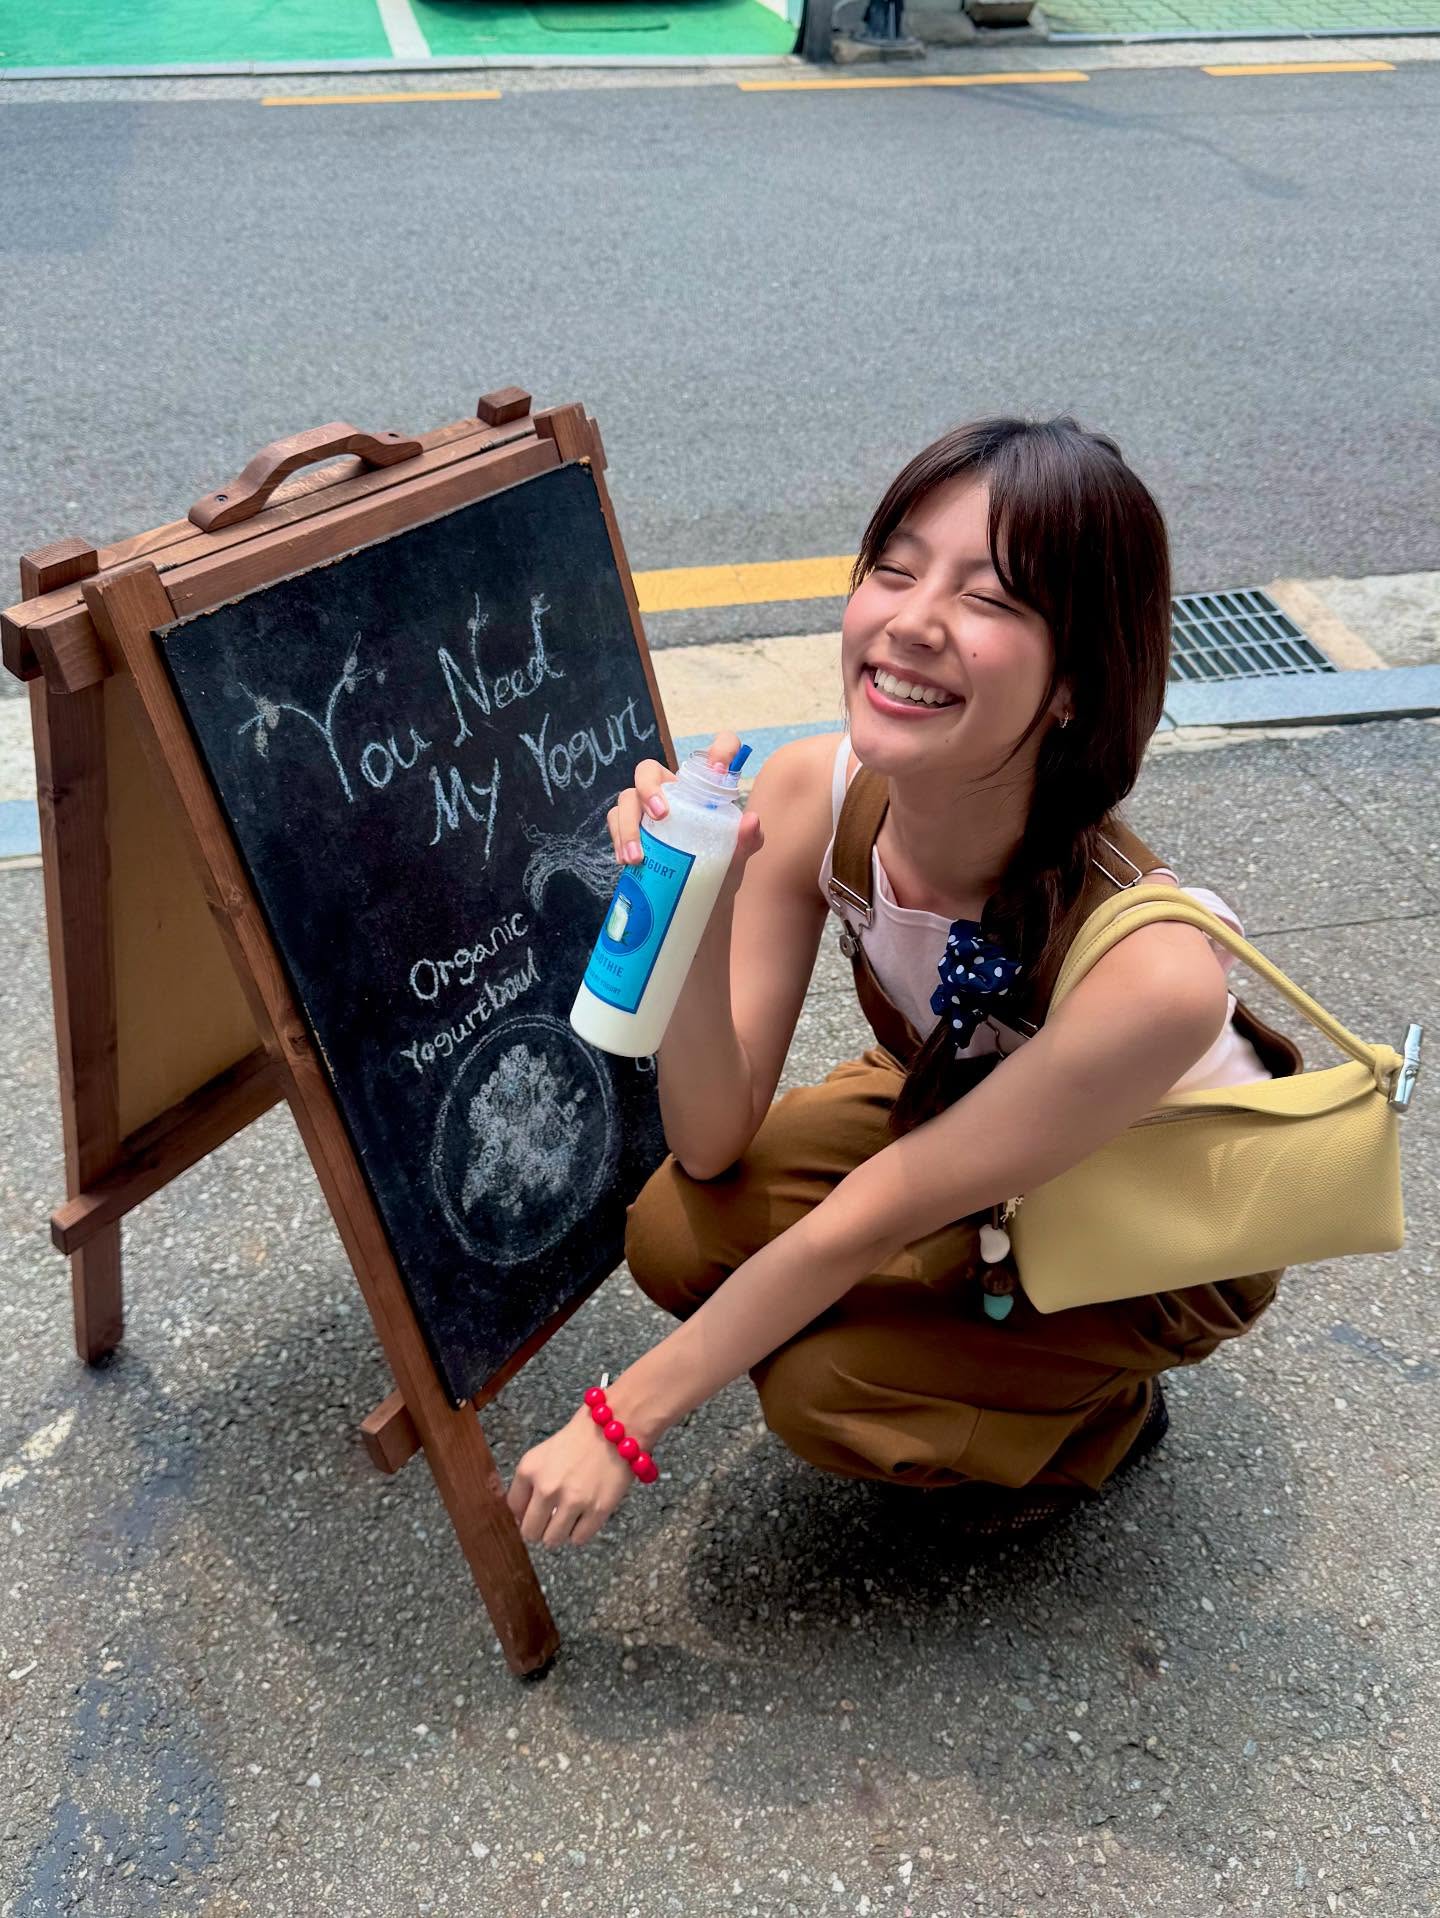 You Need
My Yogurt
Organic
Yogurtbowl
OGURT